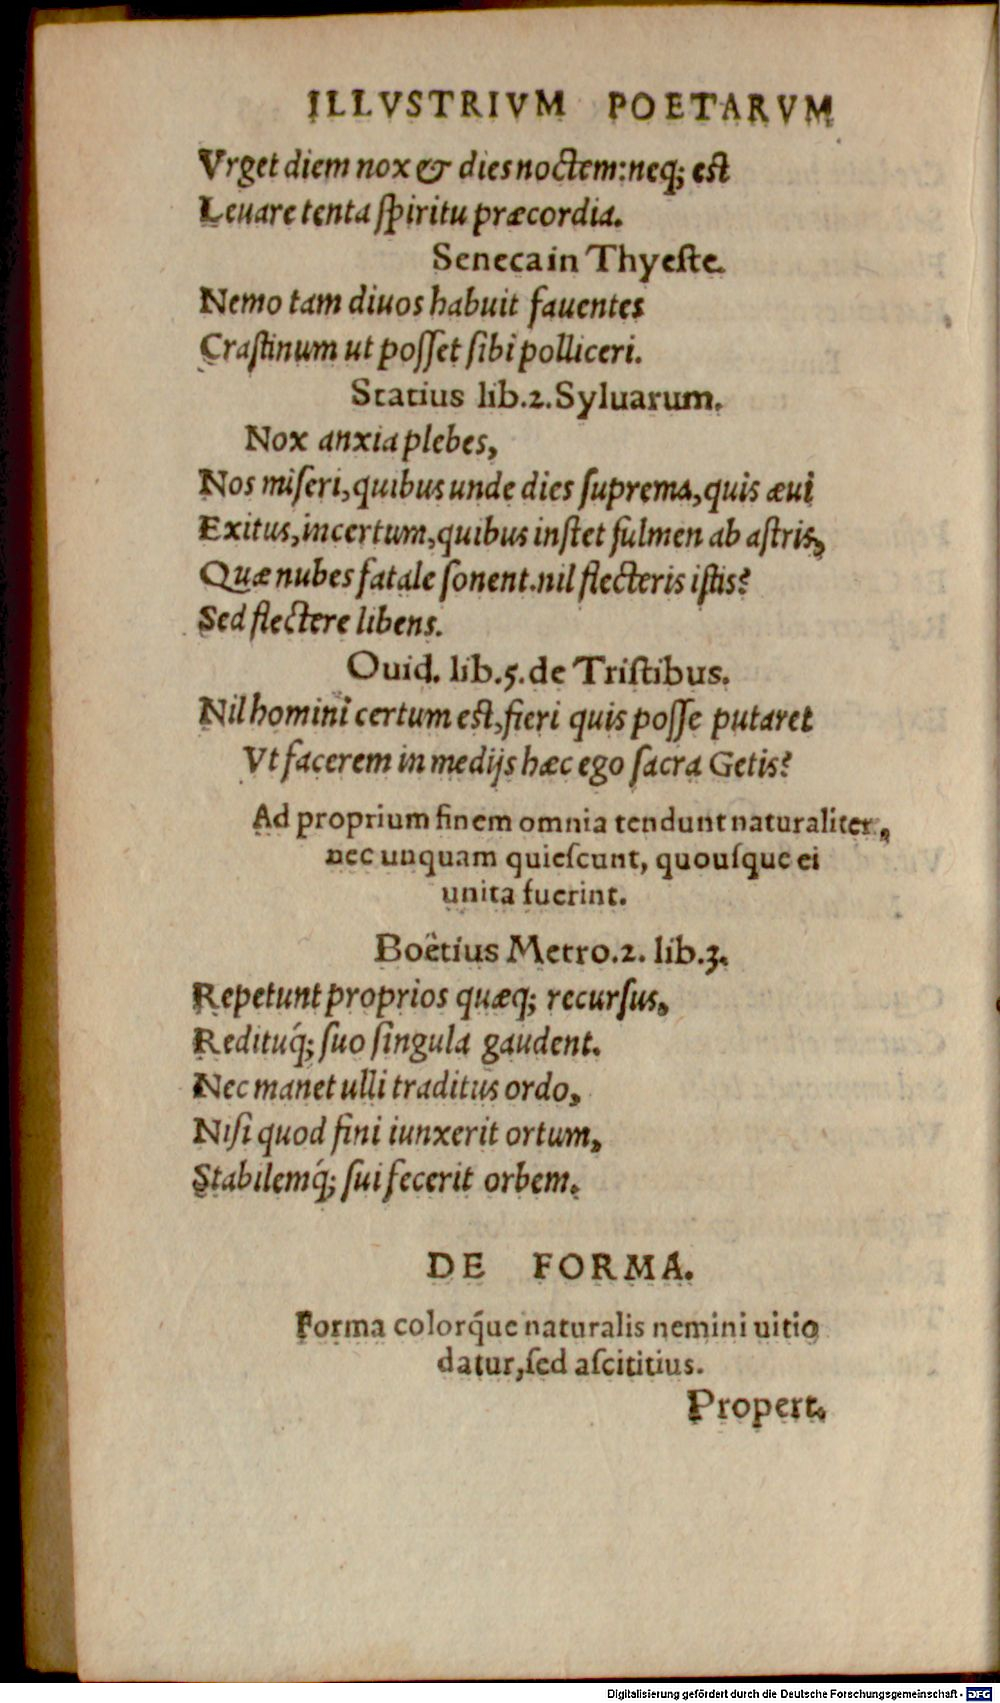 ILLVSTRIVM POETARVM
Vrget diem nox & dies noctem: neq; est
Leuare tenta ſpiritu præcordia.
Seneca in Thyeſte.
Nemo tam diuos habuit fauentes
Craſtinum ut poſſet ſibi polliceri.
Statius lib.2. Syluarum.
Nox anxia plebes,
Nos miſeri, quibus unde dies ſuprema, quis æui
Exitus, incertum, quibus inſtet fulmen ab aſtris,
Quæ nubes fatale ſonent. nil flecteris iſtis?
Sed flectere libens.
Ouid. lib.5. de Triſtibus.
Nil homini certum est, fieri quis poſſe putaret
Vt facerem in medijs hæc ego ſacra Getis?
Ad proprium finem omnia tendunt naturaliter,
nec unquam quieſcunt, quouſque ei
unita fuerint.
Boëtius Metro.2. lib.3.
Repetunt proprios quæq; recurſus,
Redituq́; ſuo ſingula gaudent.
Nec manet ulli traditus ordo,
Niſi quod fini iunxerit ortum,
Stabilemq́; ſui fecerit orbem.
DE FORMA.
Forma colorq́ue naturalis nemini uitio
datur, ſed aſcititius.
Propert.
Digitalisierung gefördert durch die Deutsche Forschungsgemeinschaft - DFG